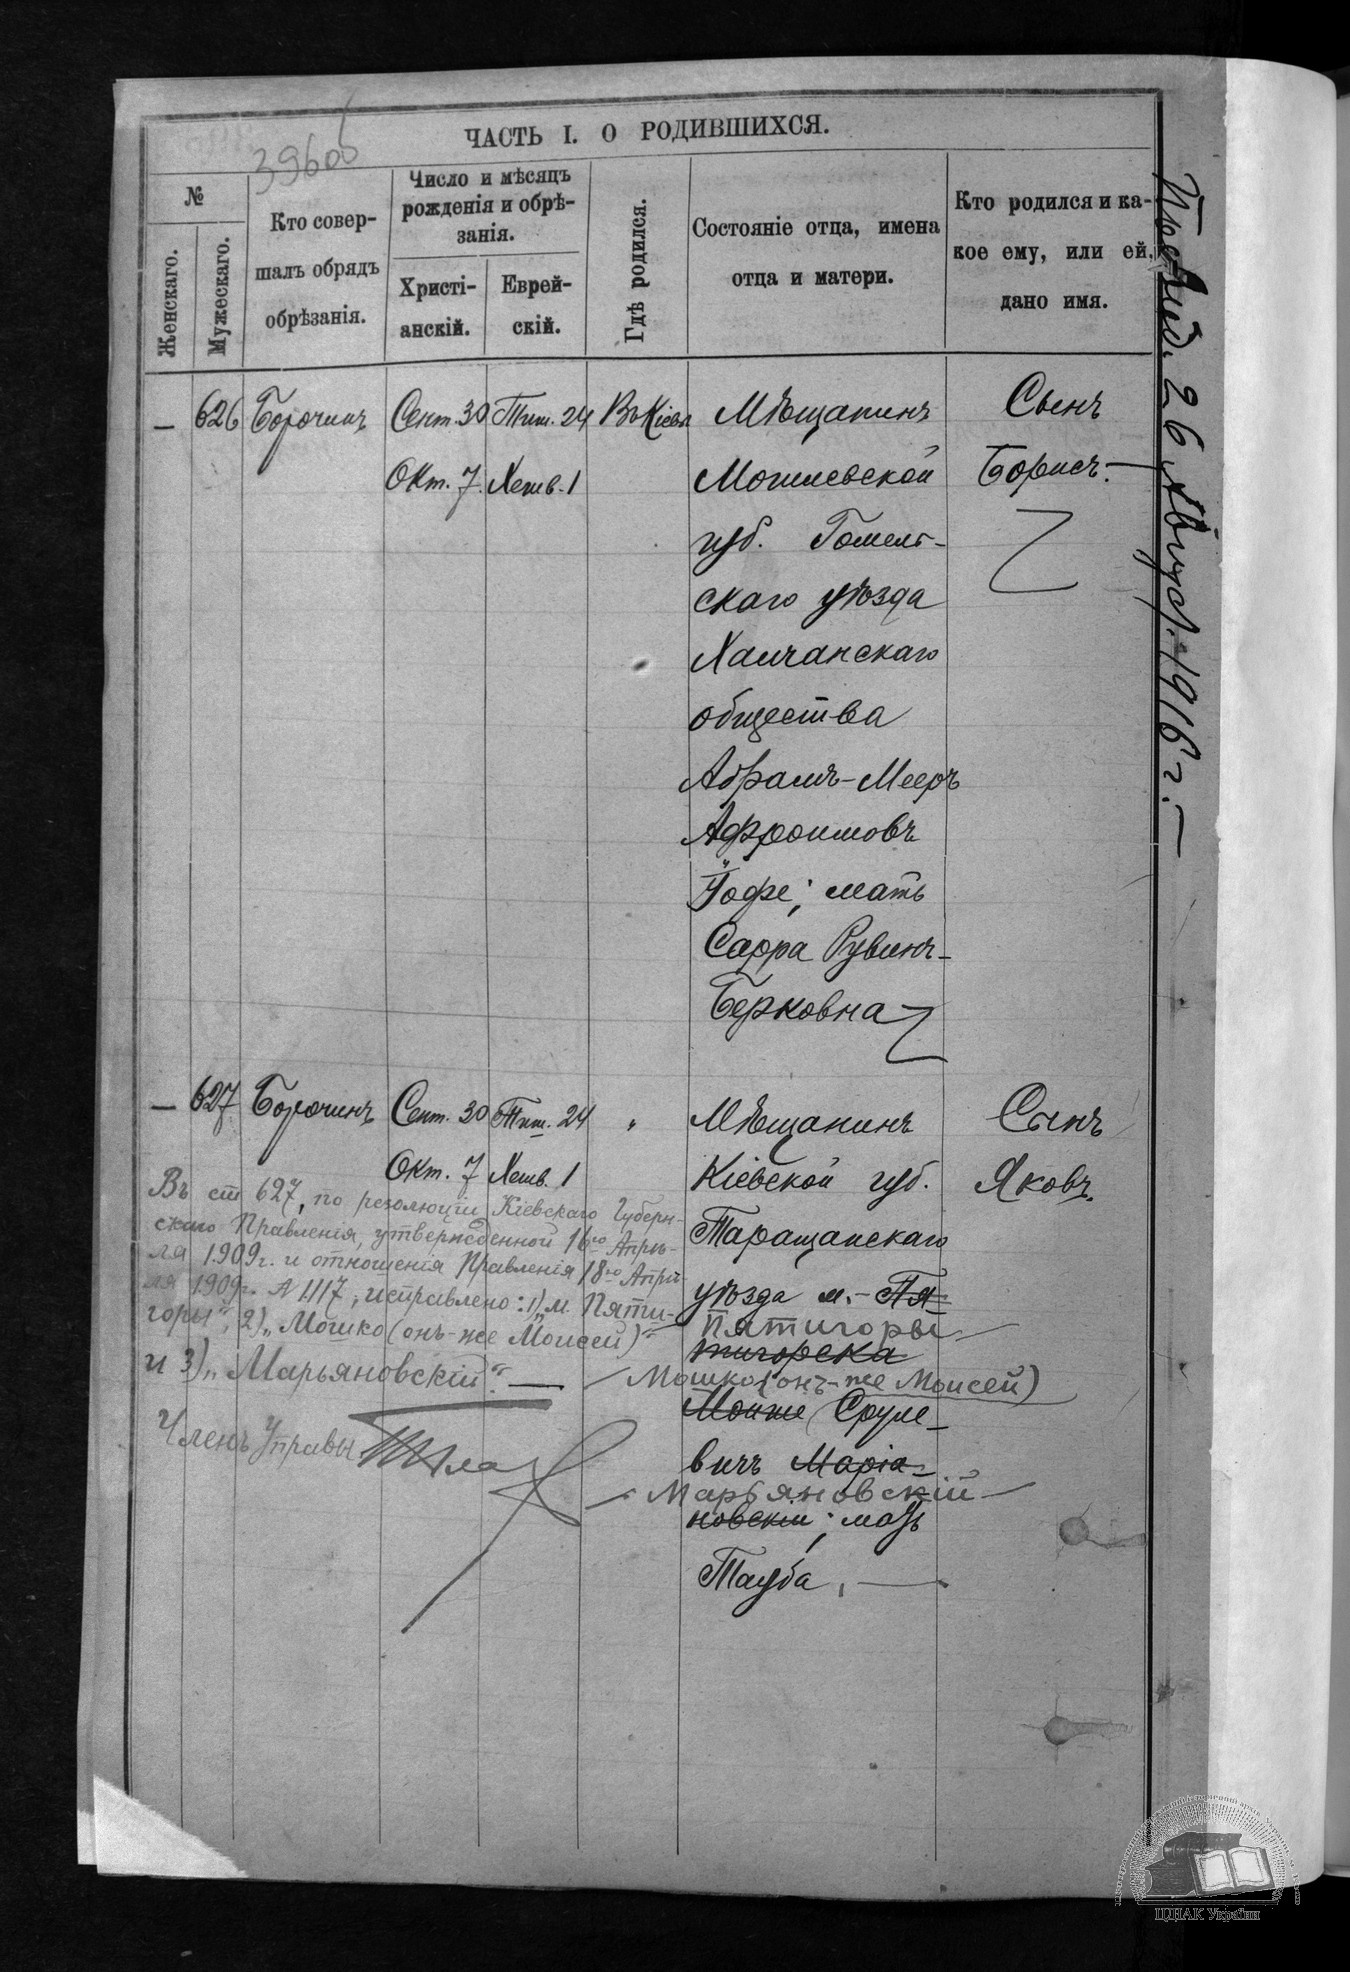 ЧАСТЬ I. О РОДИВШИХСЯ.
№
Женскаго.
Мужескаго.
Кто совер-
шалъ обрядъ
обрѣзанія.
Число и мѣсяцъ
рожденія и обрѣ-
занія.
Христі-
анскій.
Еврей-
скій.
Гдѣ родился.
Состояніе отца, имена
отца и матери.
Кто родился и ка-
кое ему, или ей,
дано имя.
— 626 Борочинъ Сент. 30 Тиш. 24 Въ Кіевѣ
Окт. 7. Хешв. 1
Мѣщанинъ
Могилевской
губ. Гомель-
скаго уѣзда
Халчанскаго
общества
Абрамъ-Мееръ
Афроимовъ
Іофе; мать
Сарра Рувинъ-
Берковна
Сынъ
Борисъ.—
— 627 Борочинъ Сент. 30 Тиш. 24 "
Окт. 7 Хешв. 1
Мѣщанинъ
Кіевской губ.
Таращанскаго
уѣзда м. Пя-
Пятигоры
тигорска
Мошко (онъ-же Моисей)
Сруле-
вичъ Маріа-
Марьяновскій
новскій; мать
Тауба, —
Сынъ
Яковъ.
Въ ст 627, по резолюціи Кіевскаго Губерн-
скаго Правленія, утвержденной 16го Апрѣ-
ля 1909г. и отношенія Правленія 18го Апрѣ-
ля 1909г. № 1117, исправлено: 1) „м. Пяти-
горы", 2) „Мошко (онъ-же Моисей)"
и 3) „Марьяновскій". —
Членъ Управы
26 Август. 1916 г. —
ЦДІАК України